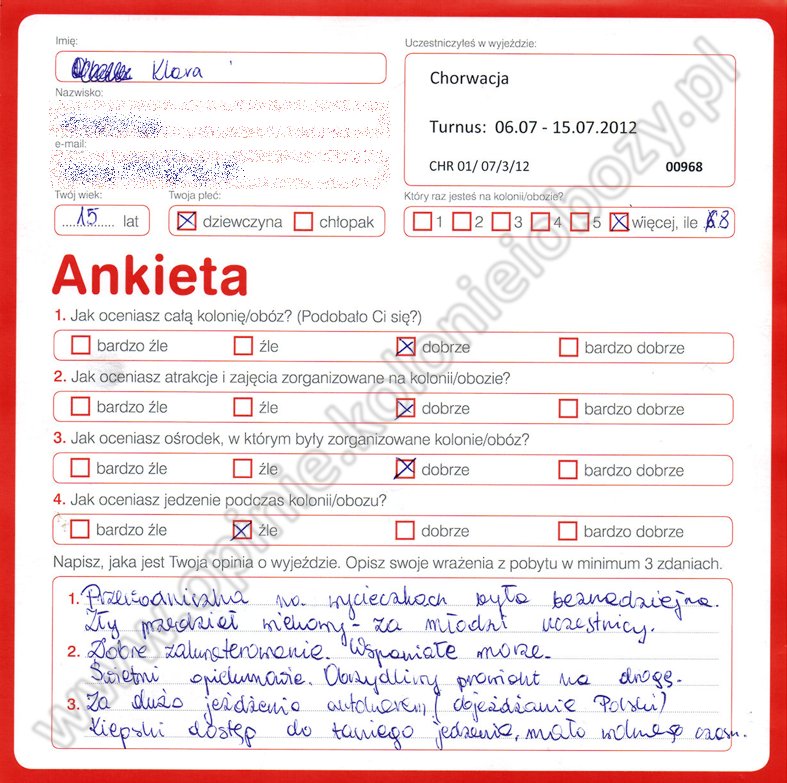 Imię:
Klara
Uczestniczyłeś w wyjeździe:
Chorwacja
Turnus: 06.07 - 15.07.2012
CHR 01/ 07/3/12 00968
Nazwisko:
e-mail:
Twój wiek:
15 lat
Twoja płeć:
dziewczyna chłopak
Który raz jesteś na kolonii/obozie?
1 2 3 4 5 więcej, ile 8
Ankieta
1. Jak oceniasz całą kolonię/obóz? (Podobało Ci się?)
bardzo źle źle dobrze bardzo dobrze
2. Jak oceniasz atrakcje i zajęcia zorganizowane na kolonii/obozie?
bardzo źle źle dobrze bardzo dobrze
3. Jak oceniasz ośrodek, w którym były zorganizowane kolonie/obóz?
bardzo źle źle dobrze bardzo dobrze
4. Jak oceniasz jedzenie podczas kolonii/obozu?
bardzo źle źle dobrze bardzo dobrze
Napisz, jaka jest Twoja opinia o wyjeździe. Opisz swoje wrażenia z pobytu w minimum 3 zdaniach.
1. Przewodniczka na wycieczkach była beznadziejna.
Zły przedział wiekowy - za młodzi uczestnicy.
2. Dobre zakwaterowanie. Wspaniałe morze.
Świetni opiekunowie. Obrzydliwy prowiant na drogę.
3. Za dużo jeżdżenia autokarem (dojeżdżanie Polski)
Kiepski dostęp do taniego jedzenia, mało wolnego czasu.
www.opinie.kolonieiobozy.pl